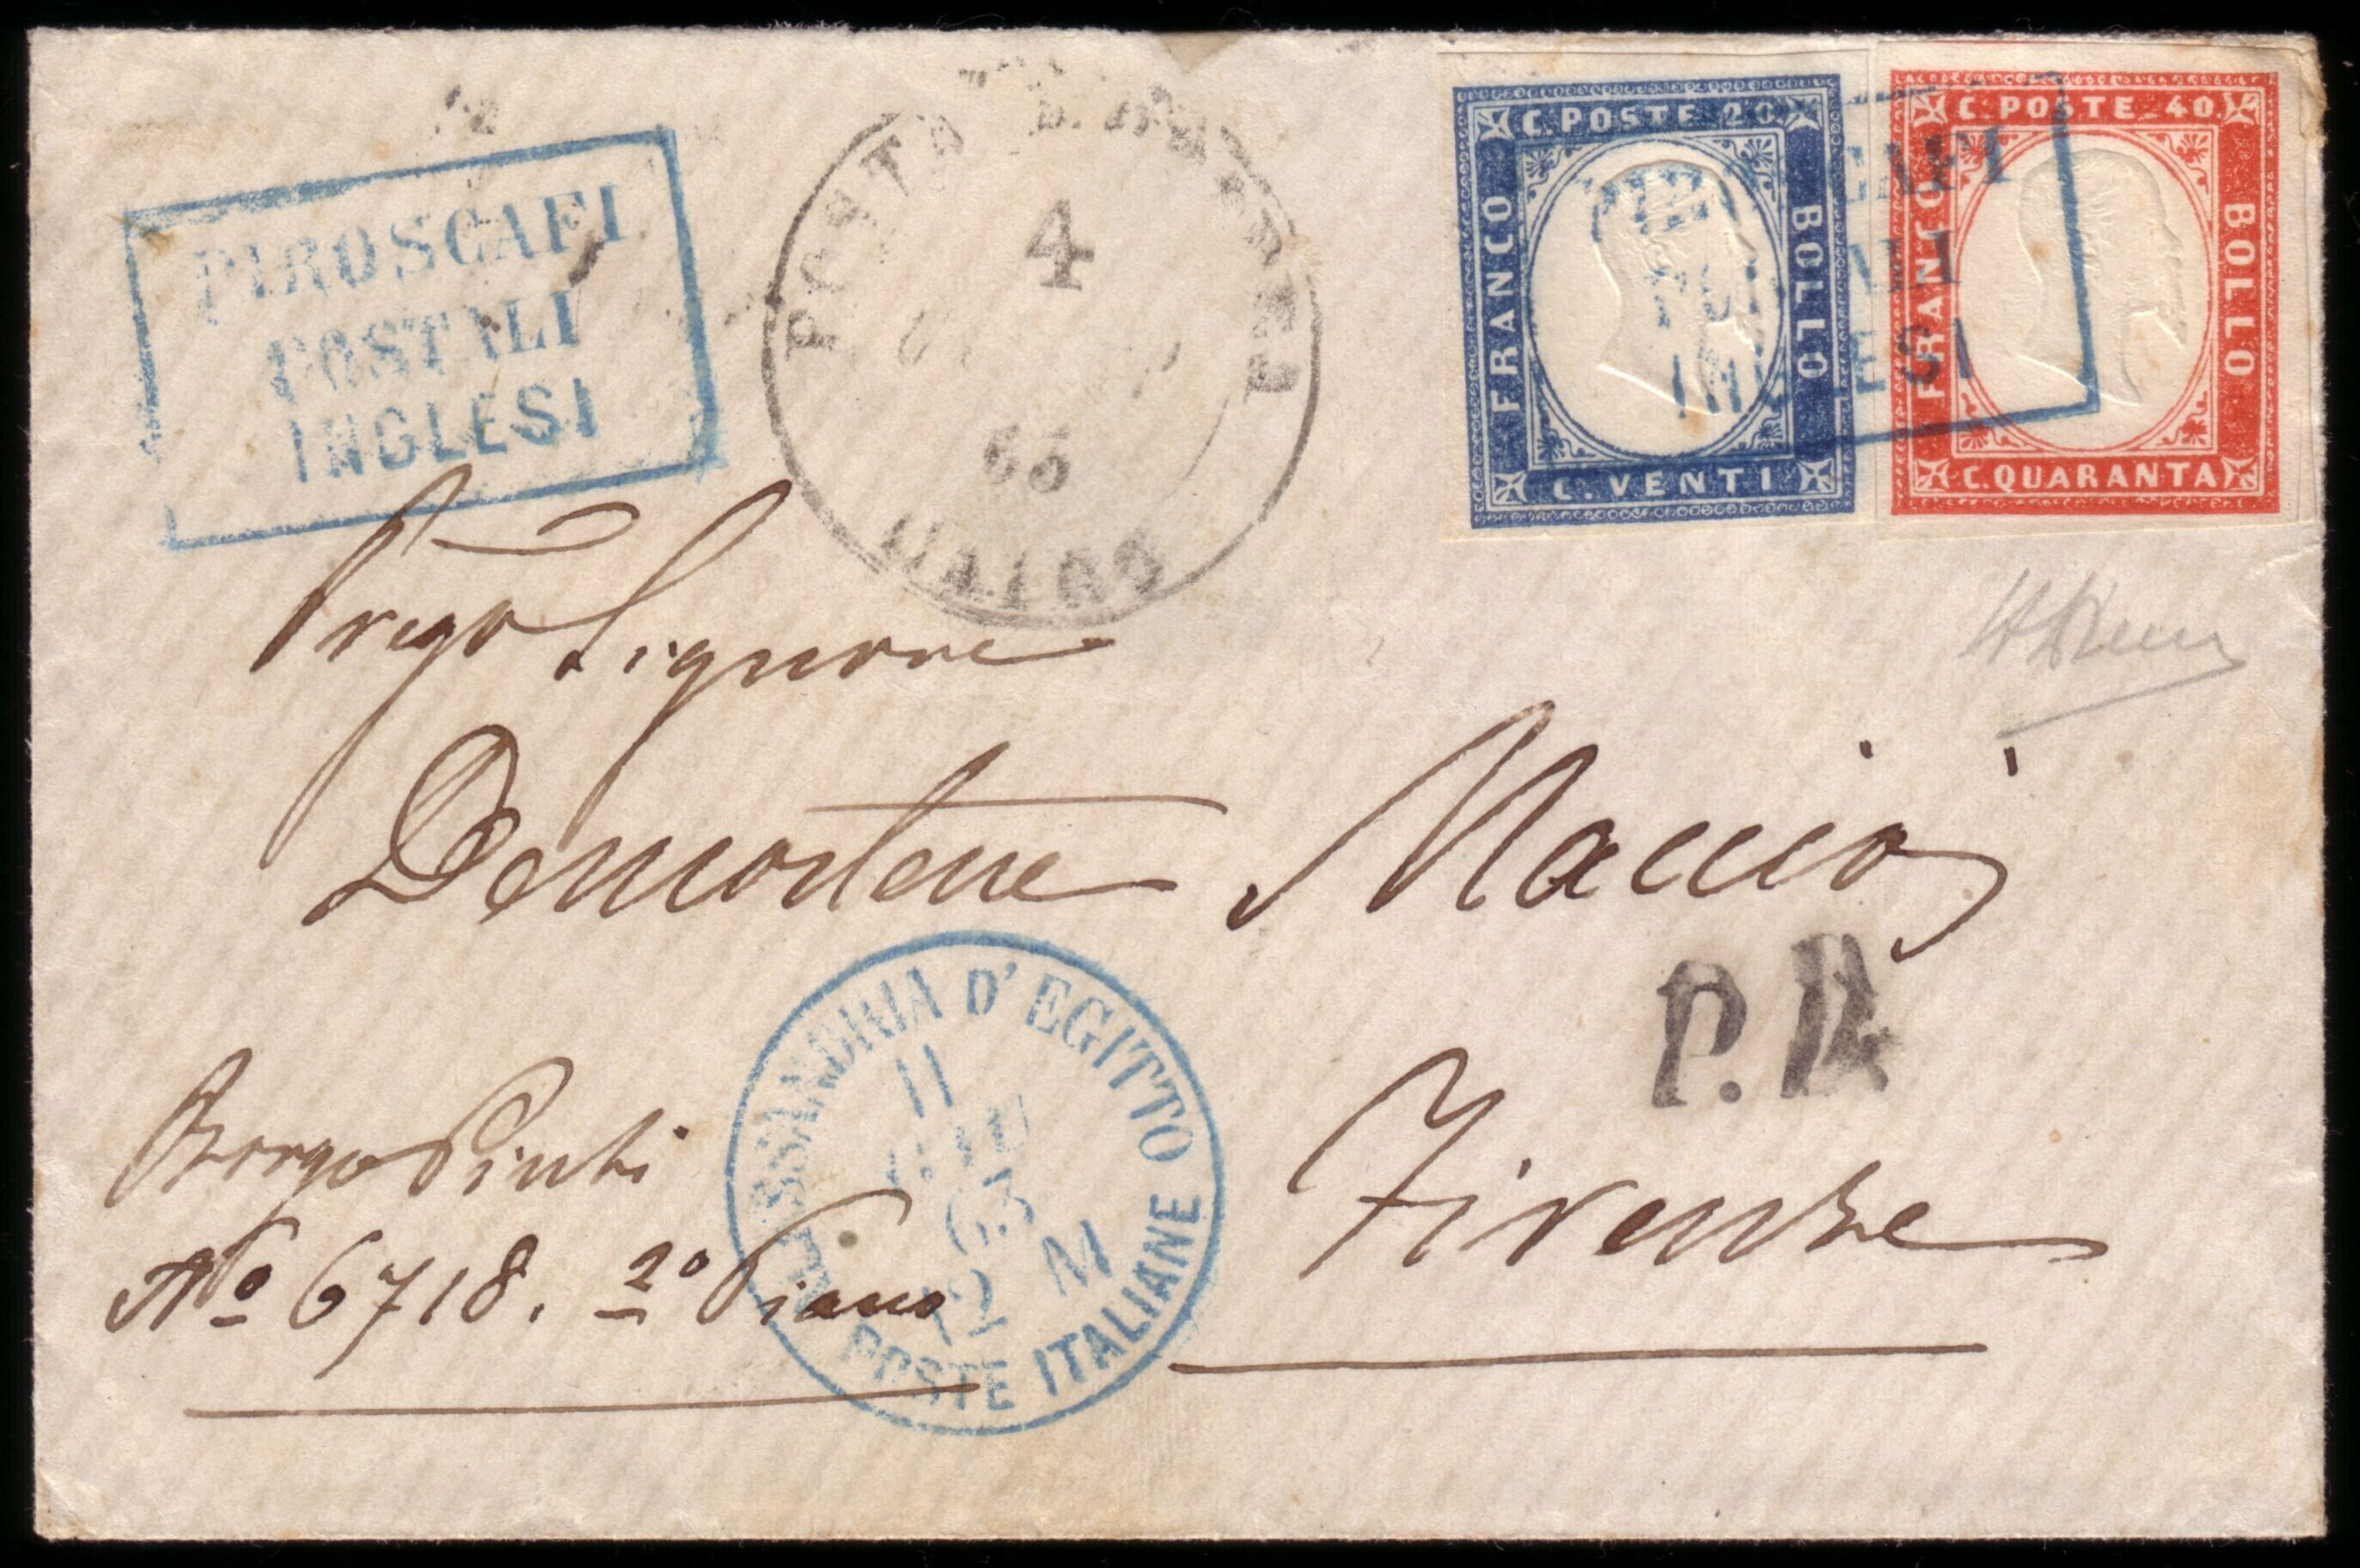 PIROSCAFI
POSTALI
INGLESI
POSTA
4
63
CAIRO
C. POSTE 20
FRANCO
BOLLO
C. VENTI
C. POSTE 40.
FRANCO
BOLLO
C. QUARANTA
INGLESI
Prego Signore
Demostene Macciò
P.D.
Firenze
Borgo Pinti
No 6718. 2º Piano
ALESSANDRIA D' EGITTO
11
63
12 M
POSTE ITALIANE